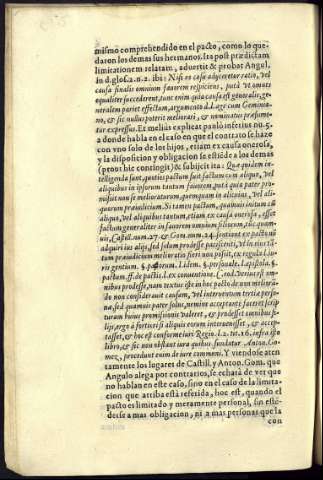 mismo comprehendido en el pacto, como lo que-
daron los demas sus hermanos. Ita post prædictam
limitationem relatam, advertit & probat Angul.
in d. glos. 2. n. 2. ibi: Nisi eo casu adyceretur ratio, vel
causa finalis omnium favorem respiciens, puta vt omnes
equaliter succederent, tunc enim quia causa est generalis, ge-
neralem pariet effectum, argumento d. l. age cum Geminia-
no, & sic nullus poterit meliorari, & nominatus præsume-
tur expressus. Et melius explicat paulo inferius nu. 5.
a donde habla en el caso en que el contrato se haze
con vno solo de los hijos, etiam ex causa onerosa,
y la disposicion y obligacion se estiēde a los demas
(prout hic contingit) & subijcit ita: Que quidem in-
telligenda sunt, quoties pactum fuit factum cum aliquo, vel
aliquibus in ipsorum tantum favorem, puta quia pater pro-
misit non se melioraturum, quemquam in alicuius, vel ali-
quorum præiudicium. Si tamen pactum, quamvis initum cū
aliquo, vel aliquibus tantum, etiam ex causa onerosa, esset
factum generaliter in favorem omnium filiorum, tūc quam-
vis, Castill. num. 27. & Gom. num. 24. sentiant ex pacto nō
adquiri ius alijs, sed solum prodesse paciscenti, vel in eius tā-
tum præiudicium meliorationem fieri non posse, ex regula
iuris gentium. §. pactorum. l. idem. §. personale.
pactum. ff. de pactis. l. ex conventione. C. eod. Verius est om-
nibus prodesse, nam textus iste in hoc pacto de non melioran-
do non considerat causam, vel interventum tertiæ perso-
næ, sed quamvis pater solus, nemine acceptante faceret scrip-
turam huius promissionis valeret, & prodesset omnibus fi-
lijs, ergo à fortiori si aliquis eorum intercessisset, & accep-
tasset, & hoc est conforme iuri Regio. l. 2. tit. 16. infra isto
libro, & sic non obstant iura quibus fundatur. Anton. Go-
mez, procedunt enim de iure communi. Y viendose aten-
tamente los lugares de Castill. y Anton. Gom. que
Angulo alega por contrarios, se echará de ver que
no hablan en este caso, sino en el caso de la limita-
cion que arriba está referida, hoc est, quando el
pacto es limitado y meramente personal, sin estē-
derse a mas obligacion, ni a mas personas que la
con